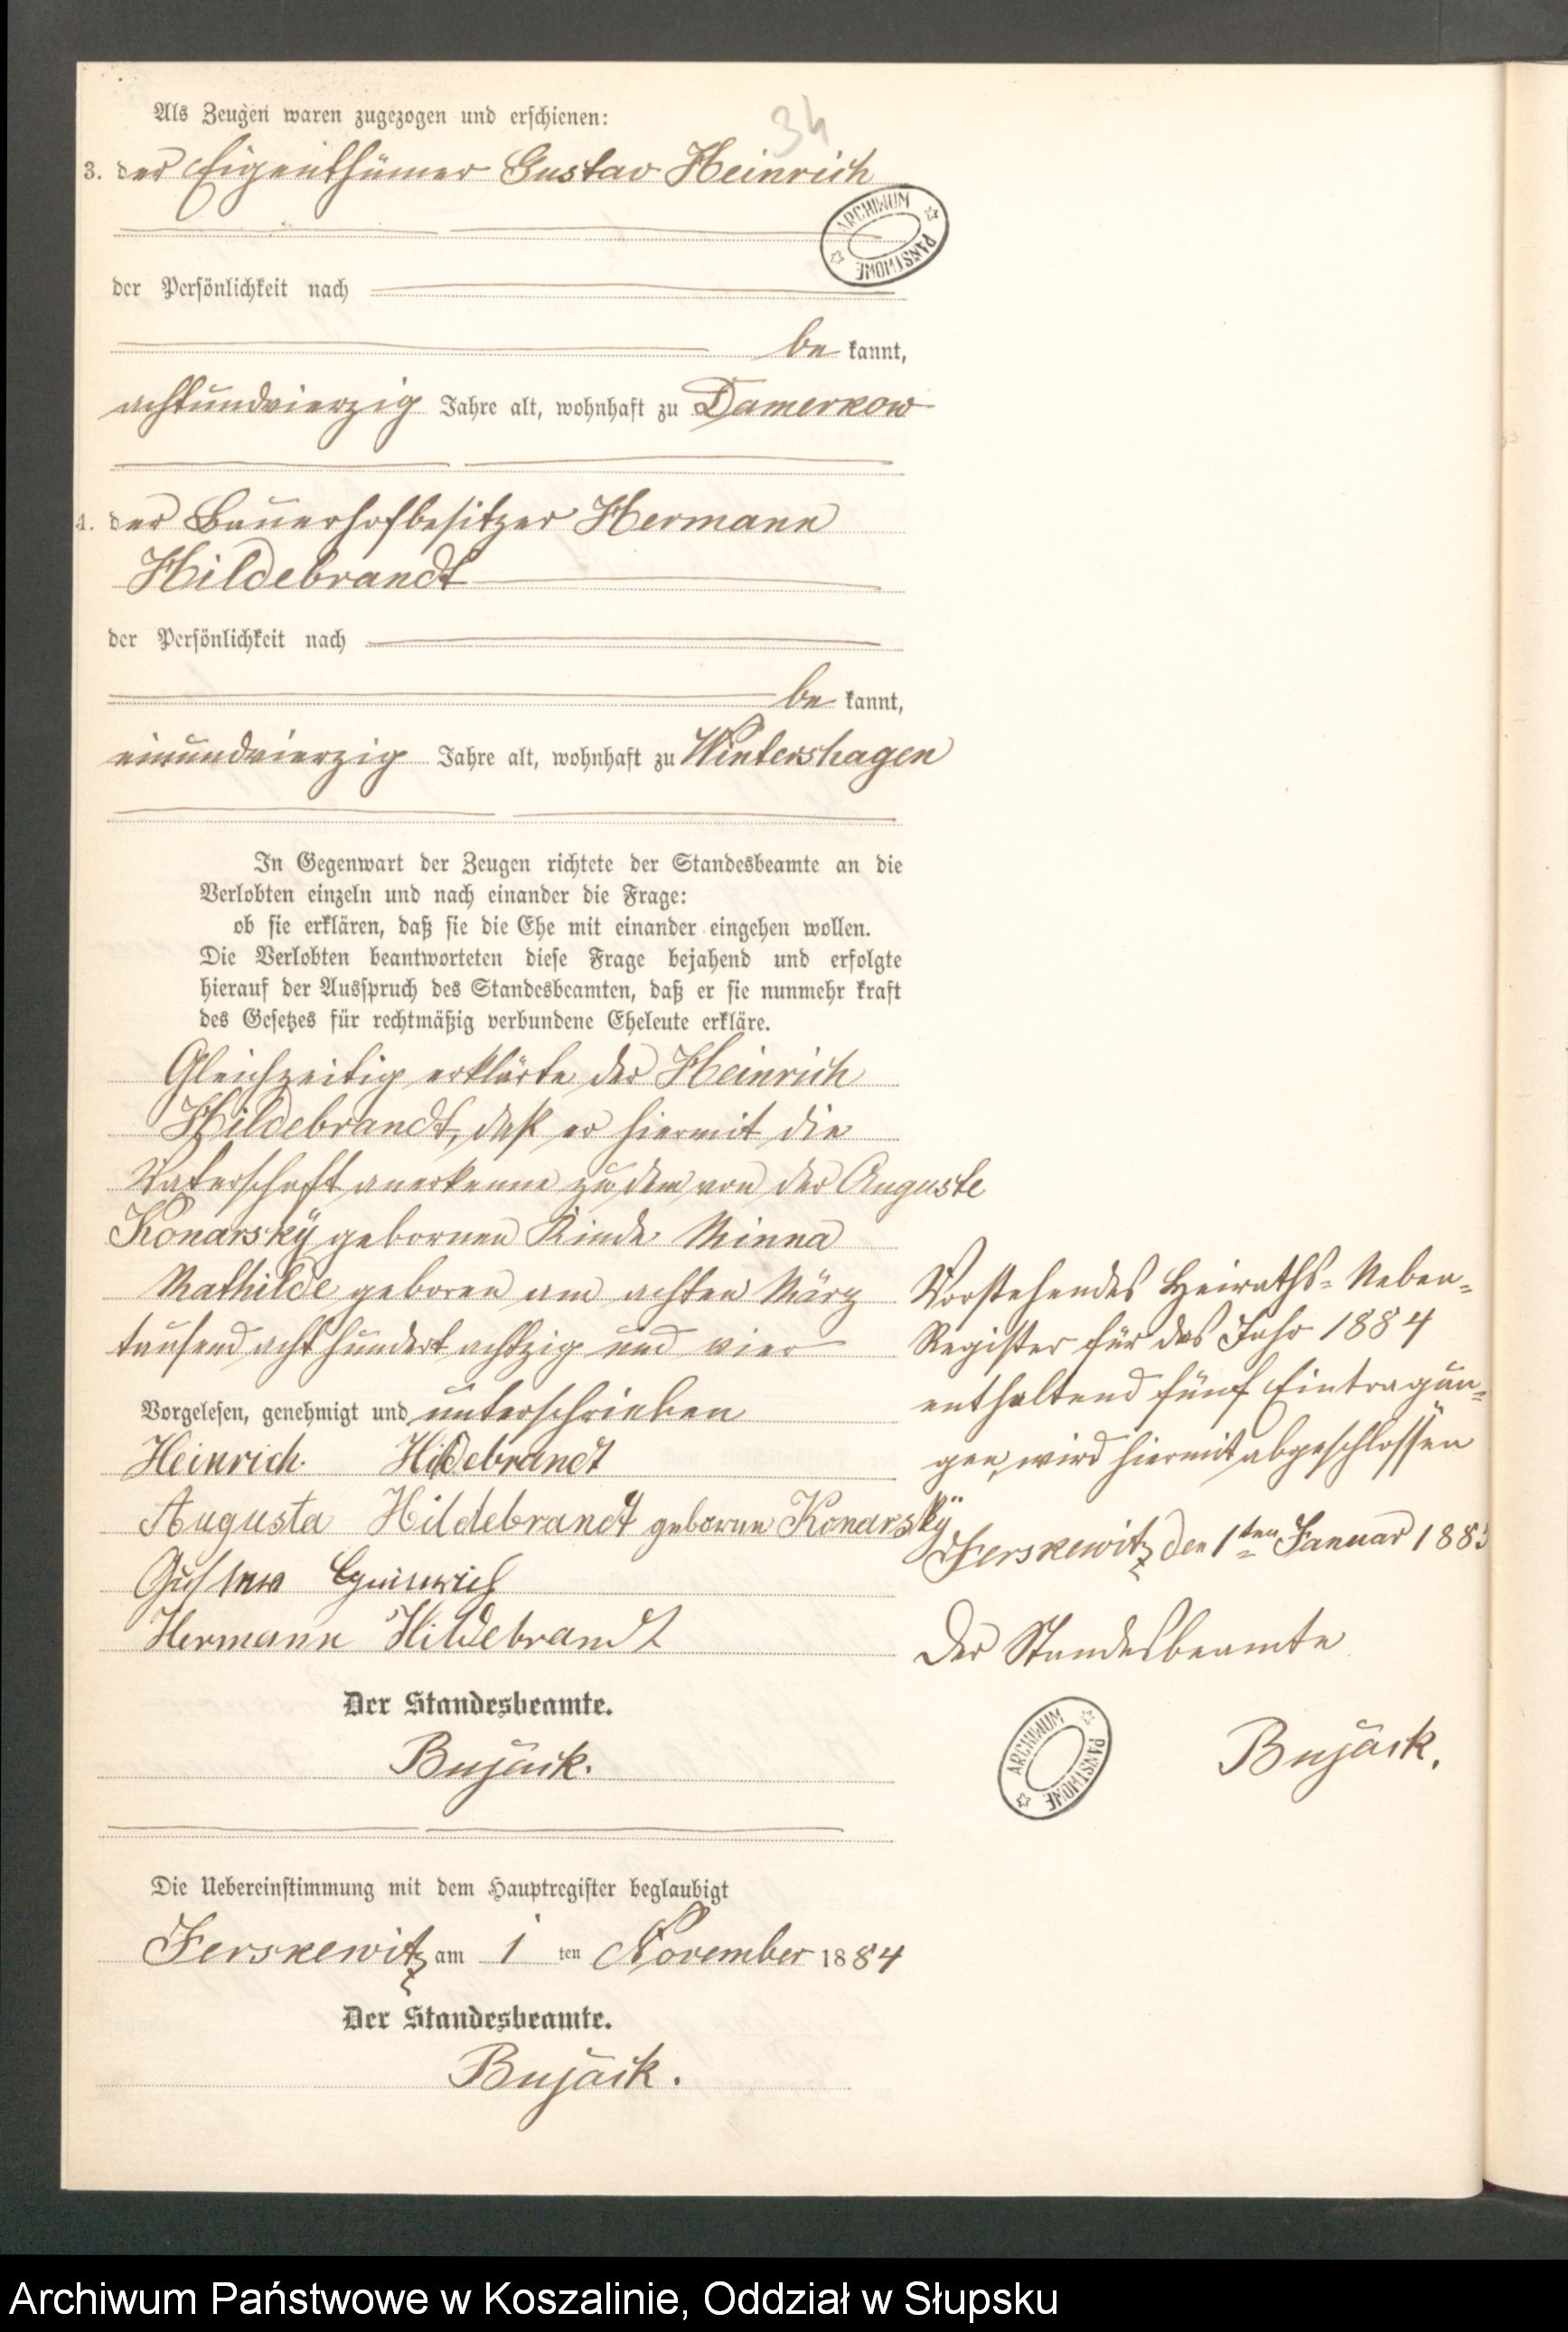 34
Als Zeugen waren zugezogen und erschienen:
3. der Eigenthümer Gustav Heinrich
ARCHIWUM PAŃSTWOWE
der Persönlichkeit nach
be kannt,
achtundvierzig Jahre alt, wohnhaft zu Damerkow
4. der Bauerhofbesitzer Hermann
Hildebrandt
der Persönlichkeit nach
be kannt,
einundvierzig Jahre alt, wohnhaft zu Wintershagen
In Gegenwart der Zeugen richtete der Standesbeamte an die
Verlobten einzeln und nach einander die Frage:
ob sie erklären, daß sie die Ehe mit einander eingehen wollen.
Die Verlobten beantworteten diese Frage bejahend und erfolgte
hierauf der Ausspruch des Standesbeamten, daß er sie nunmehr kraft
des Gesetzes für rechtmäßig verbundene Eheleute erkläre.
Gleichzeitig erklärte der Heinrich
Hildebrandt, daß er hiermit die
Vaterschaft anerkenne zu dem von der Auguste
Konarsky gebornen Kinde Minna
Mathilde geboren am achten März
tausend acht hundert achtzig und vier
Vorgelesen, genehmigt und unterschrieben
Heinrich Hildebrandt
Augusta Hildebrandt geborne Konarsky
Gustav Heinrich
Hermann Hildebrandt
Der Standesbeamte.
Bujack.
Die Uebereinstimmung mit dem Hauptregister beglaubigt
Jerskewitz am 1 ten November 1884
Der Standesbeamte.
Bujack.
Vorstehendes Heiraths-Neben-
Register für das Jahr 1884
enthaltend fünf Eintragun-
gen, wird hiermit abgeschlossen
Jerskewitz den 1ten Januar 1885
Der Standesbeamte
Bujack.
ARCHIWUM PAŃSTWOWE
Archiwum Państwowe w Koszalinie, Oddział w Słupsku